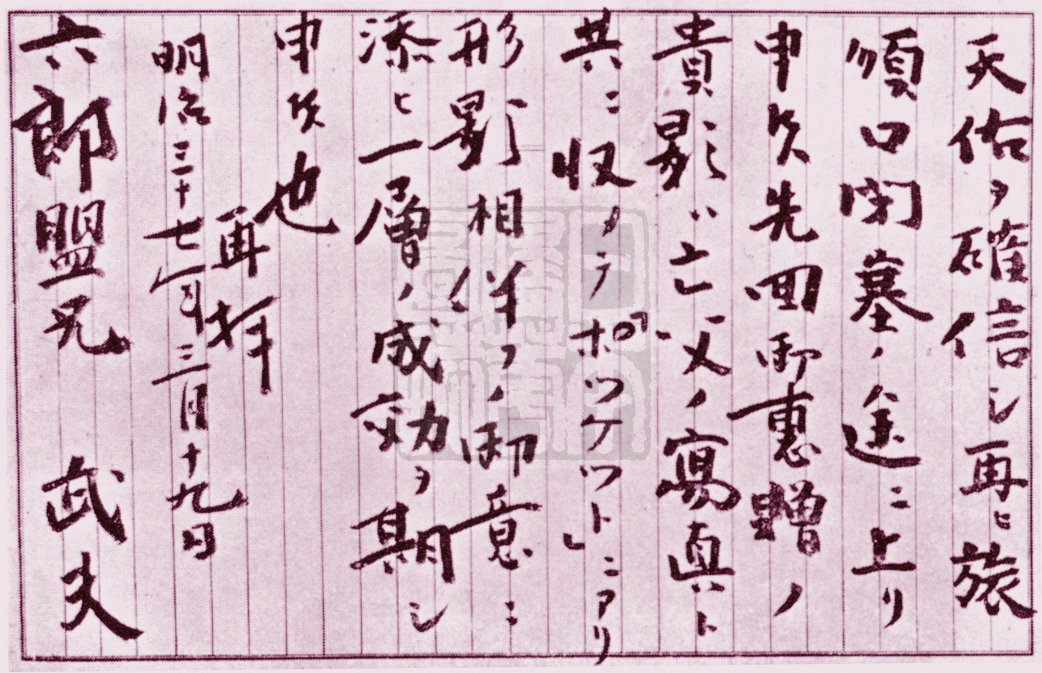 天佑ヲ確信シ再ヒ旅
順口閉塞ノ途ニ上リ
申候先回御惠贈ノ
貴影ハ亡父ノ寫真ト
共ニ収メテ「ポツケツト」ニアリ
形影相伴フノ御意ニ
添ヒ一層ノ成効ヲ期シ
申候也
再拝
明治三十七年三月十九日
六郎盟兄 武夫